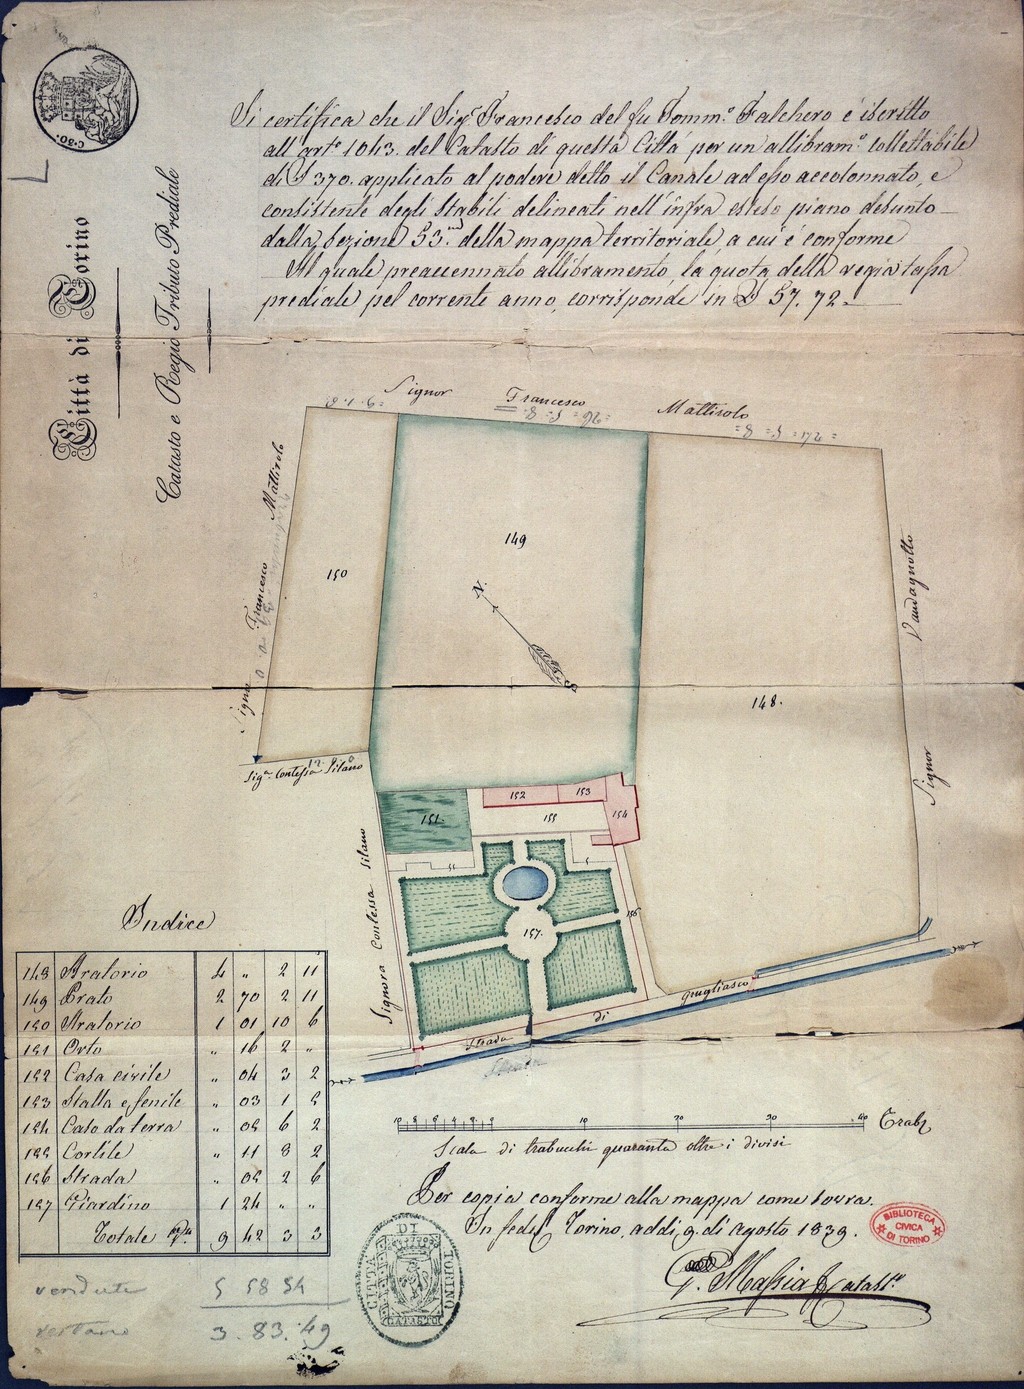 Città di Torino
Catasto e Regio Tributo Prediale
C. 80.
Si certifica che il Sig.r Francesco del fu Tomm.o Falchero è iscritto
all'art.o 1043. del Catasto di questa Città per un'allibram.o collettabile
di £ 370. applicato al podere detto il Canale ad esso accolonnato, e
consistente degli Stabili delineati nell'infra esteso piano desunto
dalla sezione 53.ma della mappa territoriale, a cui è conforme
Al quale preaccennato allibramento, la quota della regia tassa
prediale pel corrente anno, corrisponde in £ 57. 72.
Signor Francesco Mattirolo
Signor Francesco Mattirolo
150
149
N.
S
148.
Signor Vaudagnotto
Sig.a Contessa Silano
Signora Contessa Silano
151.
152
153
154
155
156
157.
Strada di Grugliasco
Indice
148 Aratorio 4 " 2 11
149 Prato 2 70 2 11
150 Aratorio 1 01 10 6
151 Orto " 16 2 "
152 Casa civile " 04 3 2
153 Stalla e fenile " 03 1 5
154 Casa da terra " 05 6 2
155 Cortile " 11 8 2
156 Strada " 05 2 6
157 Giardino 1 24 " "
Totale 9 42 3 3
vendute 5 58 54
restano 3. 83. 49
10 8 6 4 2 10 20 30 40 Trab.
Scala di trabucchi quaranta oltre i divisi
Per copia conforme alla mappa come sovra.
In fede, Torino, addì 9. di agosto 1839.
G. Massia Catast.o
CITTÀ DI TORINO
CATASTO
BIBLIOTECA
CIVICA
DI TORINO